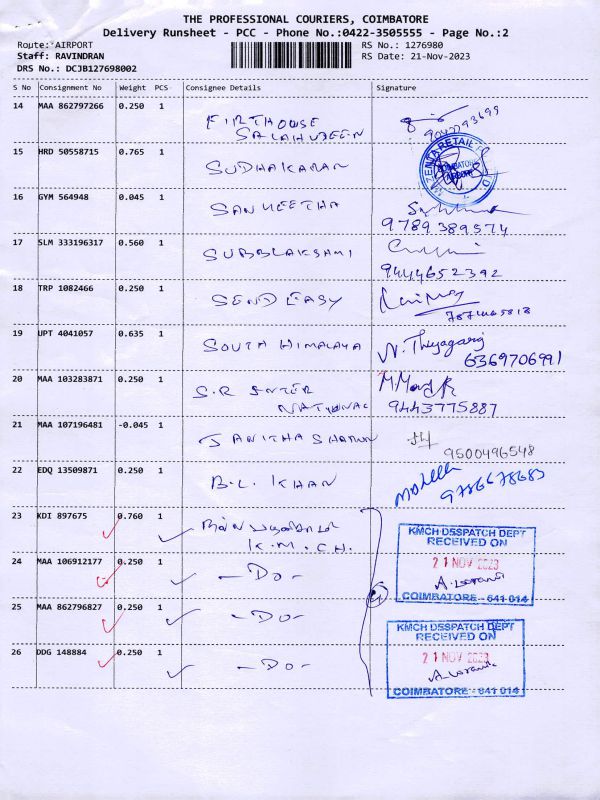 THE PROFESSIONAL COURIERS, COIMBATORE
Delivery Runsheet - PCC - Phone No.:0422-3505555 - Page No.:2
Route: AIRPORT
RS No.: 1276980
Staff: RAVINDRAN
RS Date: 21-Nov-2023
DRS No.: DCJB127698002
S No Consignment No Weight PCS Consignee Details Signature
14 MAA 862797266 0.250 1 FIRTHOUSE
SALAHUDEEN
15 HRD 50558715 0.765 1 SUDHAKARAN
16 GYM 564948 0.045 1 SANGEETHA
9789389574
17 SLM 333196317 0.560 1 SUBBLAKSHMI
9444652392
18 TRP 1082466 0.250 1 SEND EASY
19 UPT 4041057 0.635 1 SOUTH HIMALAYA
6369706991
20 MAA 103283871 0.250 1 S.R INTER
NATIONAL
9443775887
21 MAA 107196481 -0.045 1
9500496548
22 EDQ 13509871 0.250 1 B.L. KHAN
23 KDI 897675 0.760 1
K.M.C.H.
KMCH DESPATCH DEPT
RECEIVED ON
21 NOV 2023
COIMBATORE - 641 014
24 MAA 106912177 0.250 1 -DO-
25 MAA 862796827 0.250 1 -DO-
26 DDG 148884 0.250 1 -DO-
KMCH DESPATCH DEPT
RECEIVED ON
21 NOV 2023
COIMBATORE - 641 014